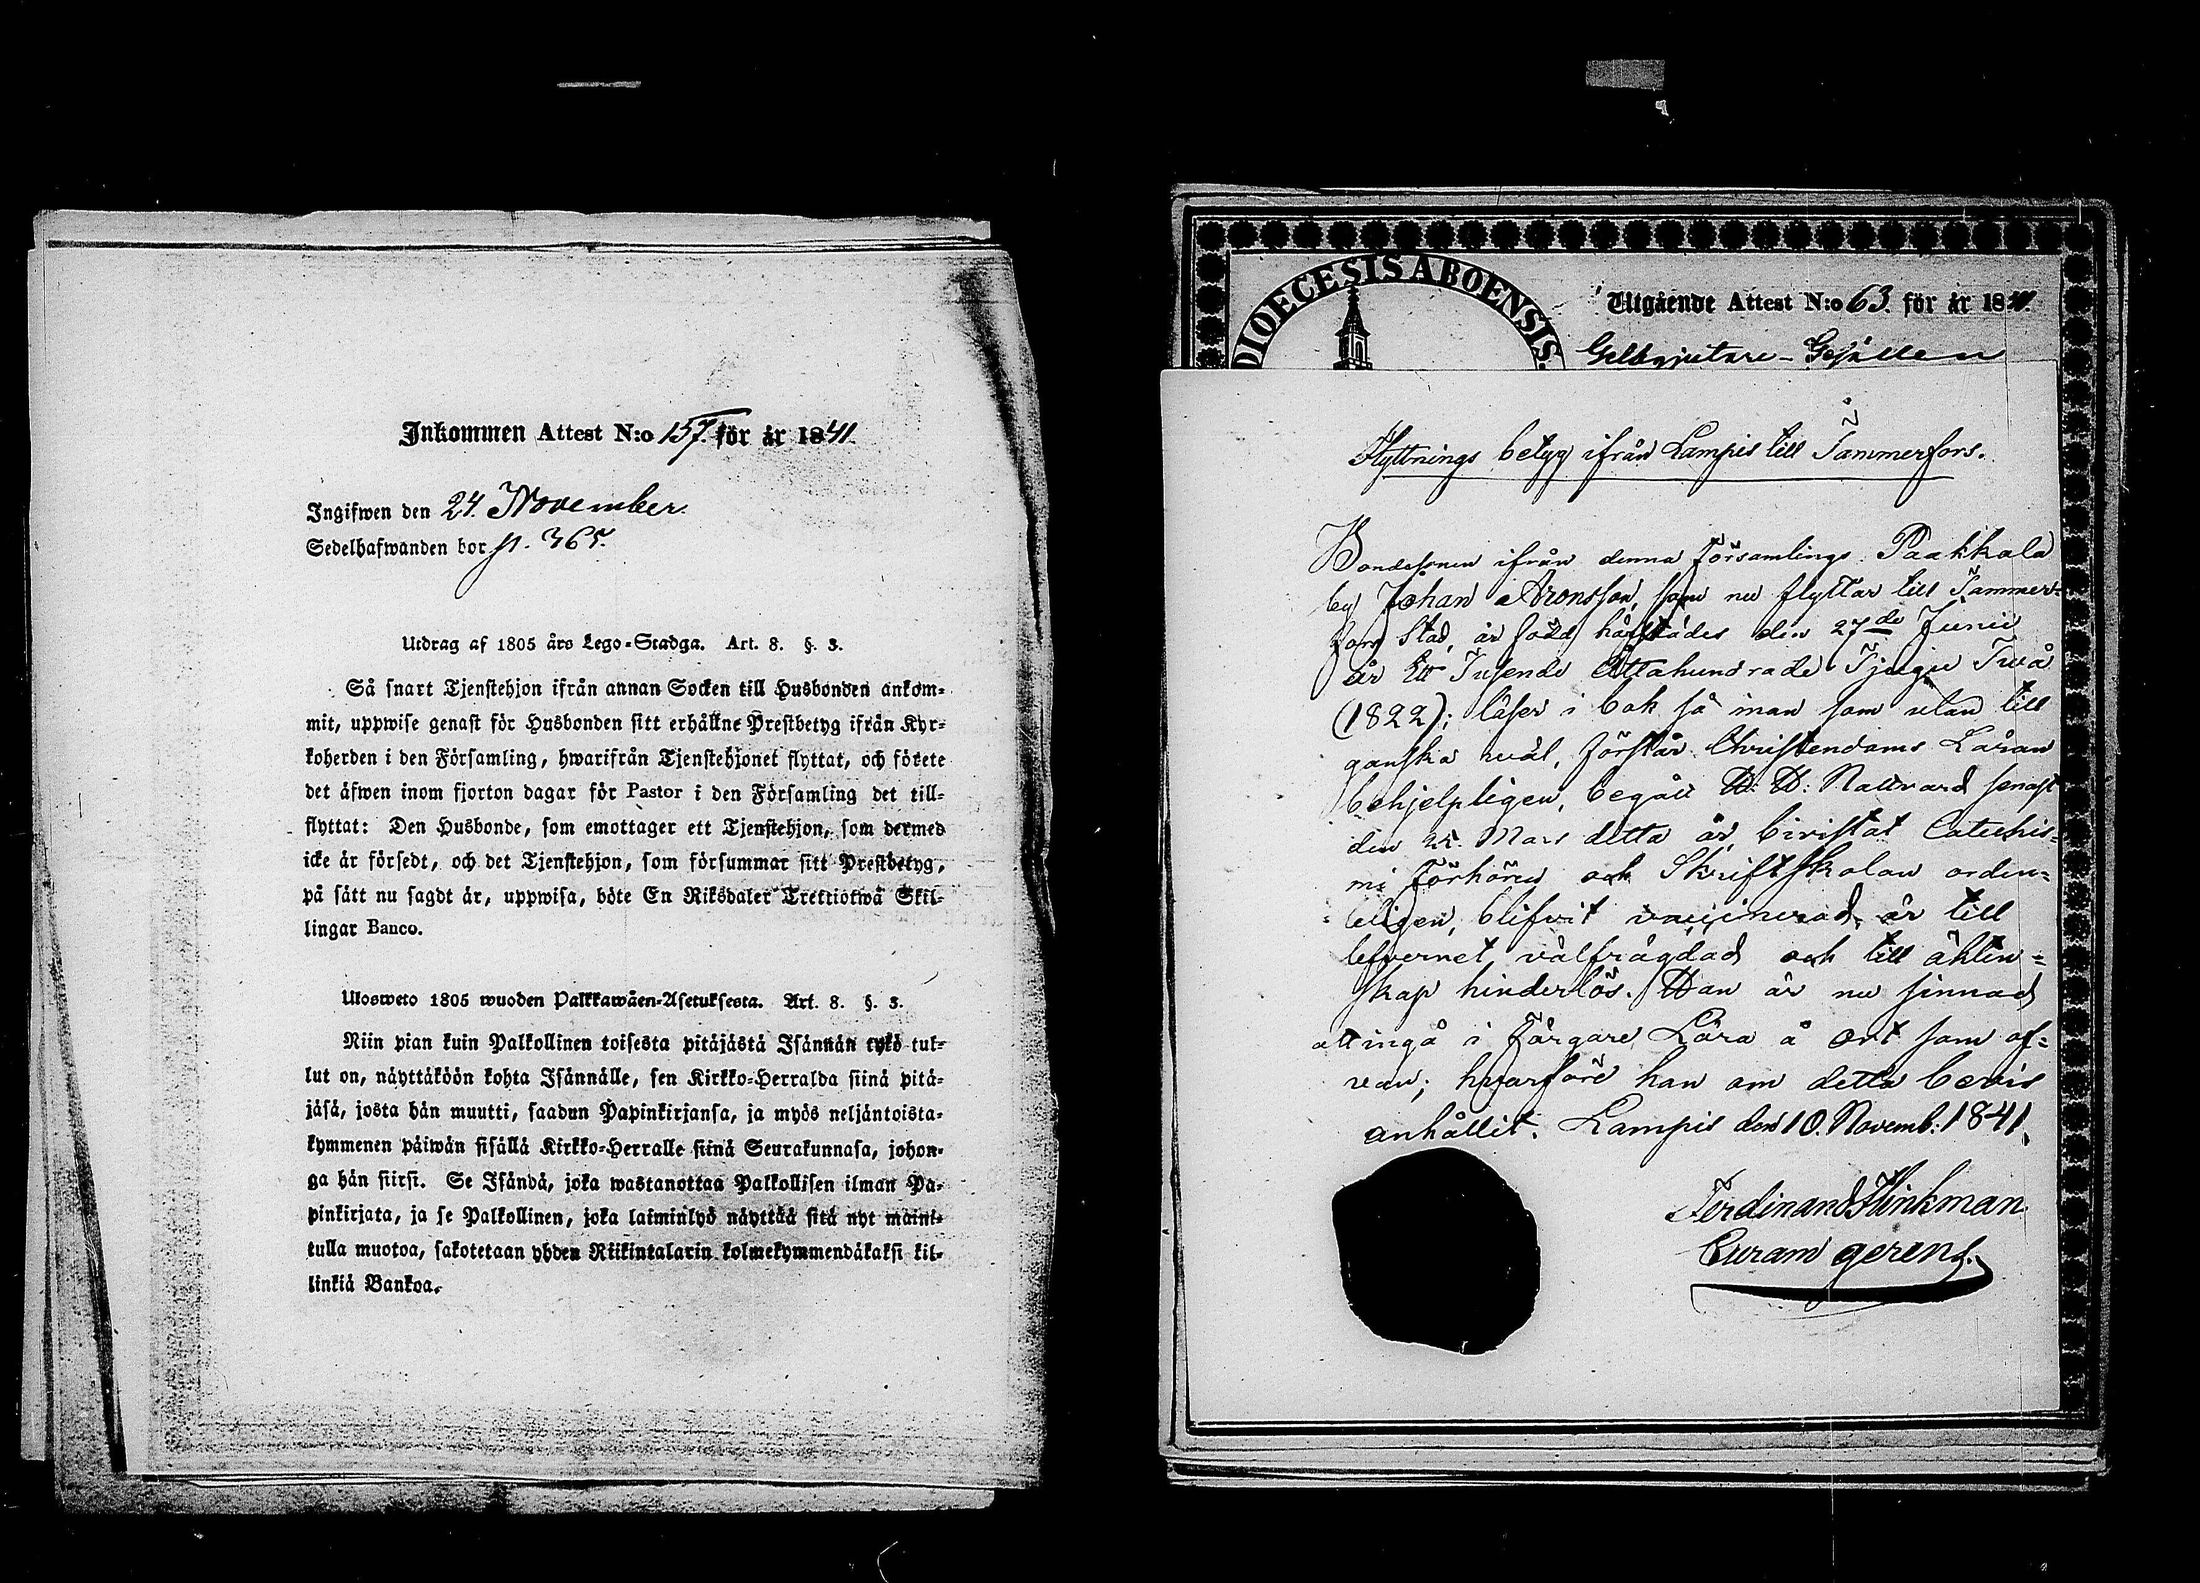 Inkommen Attest N:o 157. för år 1841.
Ingifwen den 24. November.
Sedelhafwanden bor p. 365.
Utdrag af 1805 års Lego-Stadga. Art. 8. §. 3.
Så snart Tjenstehjon ifrån annan Socken till Husbonden ankom-
mit, uppwise genast för Husbonden sitt erhållne Prestbetyg ifrån Kyr-
koherden i den Församling, hwarifrån Tjenstehjonet flyttat, och förete
det äfwen inom fjorton dagar för Pastor i den Församling det till-
flyttat: Den Husbonde, som emottager ett Tjenstehjon, som dermed
icke är försedt, och det Tjenstehjon, som försummar sitt Prestbetyg,
på sätt nu sagdt är, uppwisa, böte En Riksdaler Trettiotwå Skil-
lingar Banco.
Ulosweto 1805 wuoden Palkkawäen-Asetuksesta. Art. 8. §. 3.
Niin pian kuin Palkollinen toisesta pitäjästä Isännän tykö tul-
lut on, näyttäköön kohta Isännälle, sen Kirkko-Herralda siinä pitä-
jäsä, josta hän muutti, saadun Papinkirjansa, ja myös neljäntoista-
kymmenen päiwän sisällä Kirkko-Herralle siinä Seurakunnasa, johon-
ga hän siirsi. Se Isändä, joka wastanottaa Palkollisen ilman Pa-
pinkirjata, ja se Palkollinen, joka laiminlyö näyttää sitä nyt maini-
tulla muotoa, sakotetaan yhden Riikintalarin kolmekymmendäkaksi kil-
linkiä Bankoa.
DIOECESIS ABOENSIS.
Utgående Attest N:o 63. för år 1841.
Gelbgjutare-Gesällen
Flyttnings betyg ifrån Lampis till Tammerfors.
Bondesonen ifrån denna Församlings Paakkola
by Johan Aronsson, som nu flyttar till Tammer-
fors Stad, är född härstädes den 27de Junii
år Ett Tusende Åttahundrade Tjugu Två
(1822); läser i bok så inan som utan till
ganska väl, förstår Christendoms Läran
behjelpligen, begått H. H. Nattvard senast
den 25. Mars detta år, bivistat Catechis-
mi Förhören och Skriftskolan orden-
teligen, blifvit vaccinerad, är till
lefvernet välfrägdad och till äkten-
skap hinderlös. Han är nu sinnad
att ingå i Färgare Lära å ort som of-
van; hvarföre han om detta bevis
anhållit. Lampis den 10. Novemb: 1841.
Ferdinand Hinkman
Curam gerens.